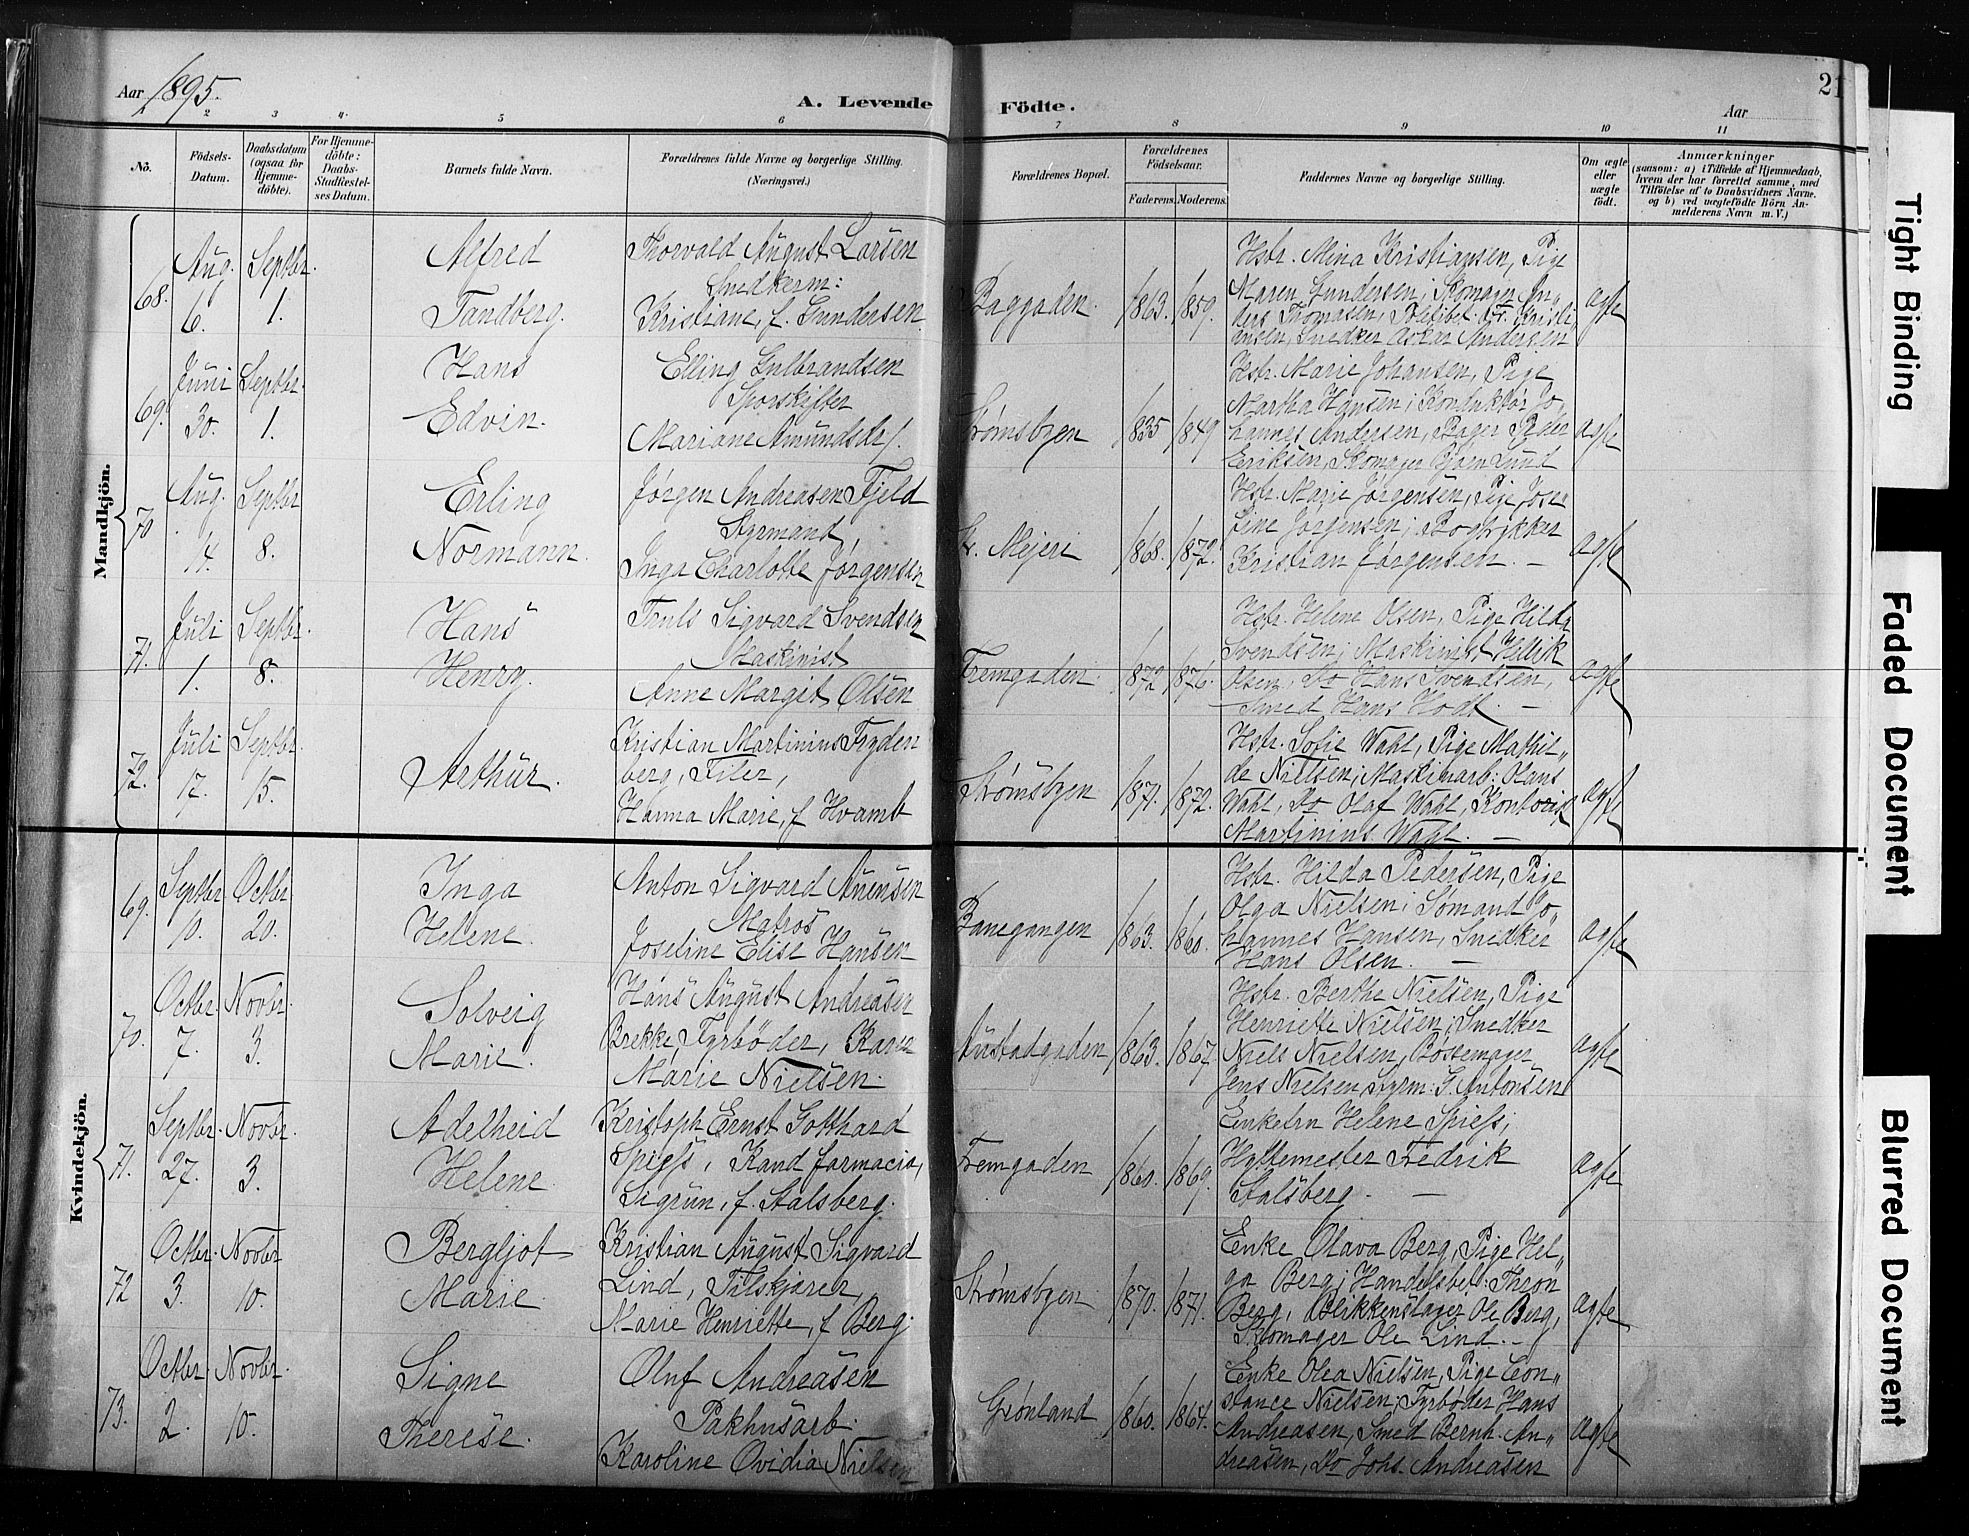 Aar 1895.
A. Levende Födte.
Aar
21
1 2 3 4. 5 6 7 8 9 10 11
No.
Födsels-Datum.
Daabsdatum (ogsaa for Hjemme-döbte).
For Hjemme-döbte: Daabs-Stadfæstel-ses Datum.
Barnets fulde Navn.
Forældrenes fulde Navne og borgerlige Stilling.
(Næringsvei.)
Forældrenes Bopæl.
Forældrenes Födselsaar.
Faderens. Moderens.
Faddernes Navne og borgerlige Stilling.
Om ægte eller uægte født.
Anmærkninger
(saasom: a) i Tilfælde af Hjemmedaab,
hvem der har forrettet samme, med
Tilföielse af to Daabsvidners Navne.
og b) ved uægtefödte Börn An-
melderens Navn m. V.)
Mandkjön.
68. Aug. 6. Septbr. 1.
Alfred
Tandberg.
Thorvald August Larsen
Snedkerm:
Kristiane, f. Gundersen
Baggaden. 1863. 1859.
Hstr. Mina Kristiansen, Pige
Maren Gundersen; Skomager An„
ders Thomasen, Politibet. Kristi„
ansen, Snedker Oskar Andersen
ægte
69. Juni 30. Septbr. 1.
Hans
Edvin.
Elling Gulbrandsen
Sporskifter
Mariane Amundsdr.
Strømsbyen 1835 1849
Hstr. Marie Johansen, Pige
Martha Hansen; Konduktør Jo„
hannes Andersen, Bager Peder
Eriksen, Skomager Bjørn Lund
ægte
70 Aug. 14. Septbr 8.
Erling
Normann.
Jørgen Andreasen Fjeld
Styrmand,
Inga Charlotte Jørgensen
Str. Mejeri 1868. 1872.
Hstr. Marie Jørgensen, Pige Jose„
fine Jørgensen; Bogtrykker
Kristian Jørgensen. —
ægte
71. Juli 1. Septbr. 8.
Hans
Henry.
Truls Sigvard Svendsen
Maskinist
Anne Margit Olsen
Fremgaden. 1872 1876.
Hstr. Helene Olsen, Pige Hilda
Svendsen; Maskinist
Olsen, Do Hans Svendsen,
Smed Hans Hodt. —
ægte
72. Juli 17. Septbr. 15.
Arthur.
Kristian Martinius Fryden
berg, Filer,
Hanna Marie, f. Hvamb
Strømsbyen 1871. 1872.
Hstr. Sofie Wahl, Pige Mathil„
de Nielsen; Maskinarb: Hans
Wahl, Do Olaf Wahl, Kontorist
Martinius Wahl. —
ægte
Kvindekjön.
69. Septbr. 10. Octbr. 20.
Inga
Helene.
Anton Sigvard Aunensen
Matros
Josefine Elise Hansen
Banegangen 1863. 1860.
Hstr. Hilda Pedersen, Pige
Olga Nielsen; Sømand Jo„
hannes Hansen, Snedker
Hans Olsen. —
ægte
70. Octbr. 7. Novbr. 3.
Solveig
Marie.
Hans August Andreasen
Brekke, Fyrbøder, Karen
Marie Nielsen.
Austadgaden 1863. 1867.
Hstr. Berthe Nielsen, Pige
Henriette Nielsen; Snedker
Niels Nielsen, Bøssemager
Jens Nielsen, Styrm: G. Antonsen
ægte
71. Septbr. 27. Novbr. 3.
Adelheid
Helene.
Kristoph Ernst Gotthard
Spiess, Kand farmacia,
Sigrun, f. Stalsberg.
Fremgaden 1860. 1869.
Enkefru Helene Spiess;
Hyttemester Fredrik
Stalsberg. —
ægte
72 Octbr. 3. Novbr 10.
Bergljot
Marie.
Kristian August Sigvard
Lind, Tilskjærer,
Marie Henriette, f. Berg.
Strømsbyen 1870. 1871.
Enke Olava Berg, Pige Hel„
ga Berg; Handelsbet: Thron
Berg, Blikkenslager Ole Berg,
Skomager Ole Lind. —
ægte
73. Octbr. 2. Novbr. 10.
Signe
Therese.
Oluf Andreasen
Pakhusarb.
Karoline Ovidia Nielsen
Grønland 1860. 1864.
Enke Olea Nielsen, Pige Con„
stance Nielsen; Fyrbøder Hans
Andreasen, Smed Bernh. An„
dreasen, Do Johs. Andreasen
ægte
Tight Binding
Faded Document
Blurred Document